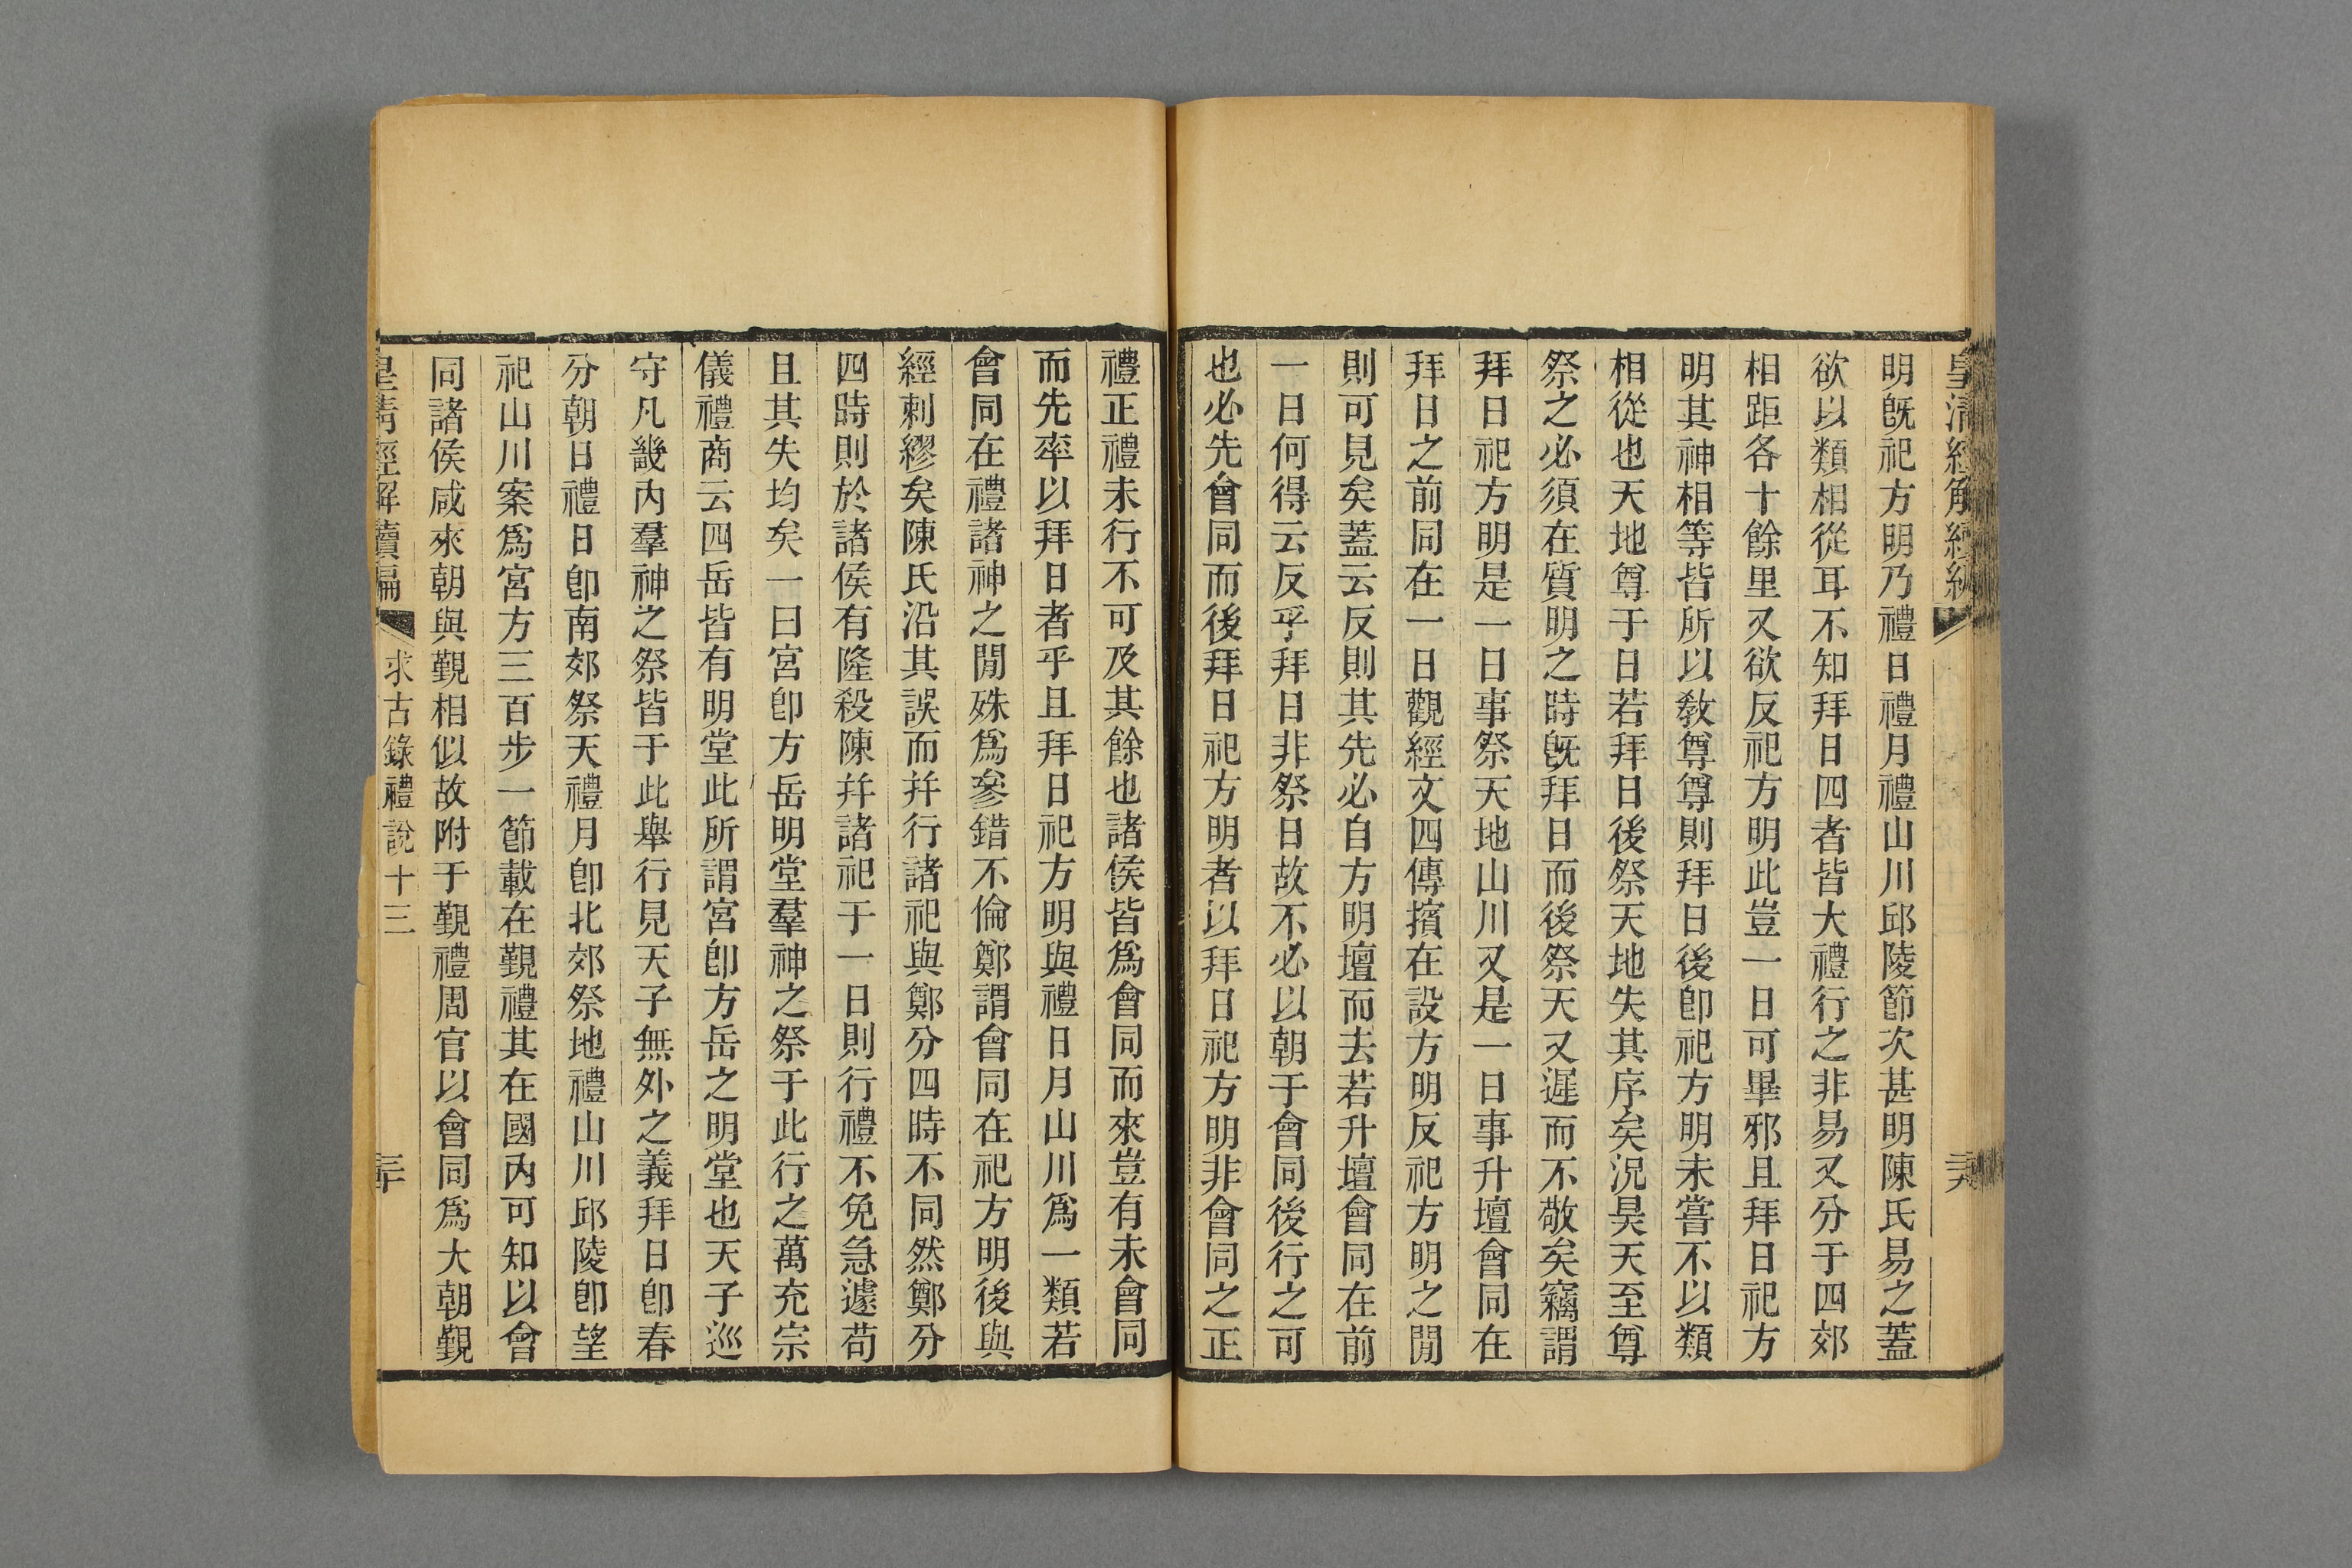 皇清經解續編
明旣祀方明乃禮日禮月禮山川邱陵節次甚明陳氏易之蓋
欲以類相從耳不知拜日四者皆大禮行之非易又分于四郊
相距各十餘里又欲反祀方明此豈一日可畢邪且拜日祀方
明其神相等皆所以敎尊尊則拜日後卽祀方明未嘗不以類
相從也天地尊于日若拜日後祭天地失其序矣況昊天至尊
祭之必須在質明之時旣拜日而後祭天又遲而不敬矣竊謂
拜日祀方明是一日事祭天地山川又是一日事升壇會同在
拜日之前同在一日觀經文四傳擯在設方明反祀方明之閒
則可見矣蓋云反則其先必自方明壇而去若升壇會同在前
一日何得云反乎拜日非祭日故不必以朝于會同後行之可
也必先會同而後拜日祀方明者以拜日祀方明非會同之正
禮正禮未行不可及其餘也諸侯皆爲會同而來豈有未會同
而先率以拜日者乎且拜日祀方明與禮日月山川爲一類若
會同在禮諸神之閒殊爲參錯不倫鄭謂會同在祀方明後與
經刺繆矣陳氏沿其誤而幷行諸祀與鄭分四時不同然鄭分
四時則於諸侯有隆殺陳幷諸祀于一日則行禮不免急遽苟
且其失均矣一曰宮卽方岳明堂羣神之祭于此行之萬充宗
儀禮商云四岳皆有明堂此所謂宮卽方岳之明堂也天子巡
守凡畿內羣神之祭皆于此舉行見天子無外之義拜日卽春
分朝日禮日卽南郊祭天禮月卽北郊祭地禮山川邱陵卽望
祀山川案爲宮方三百步一節載在覲禮其在國內可知以會
同諸侯咸來朝與覲相似故附于覲禮周官以會同爲大朝覲
皇清經解續編 求古錄禮說十三 三十